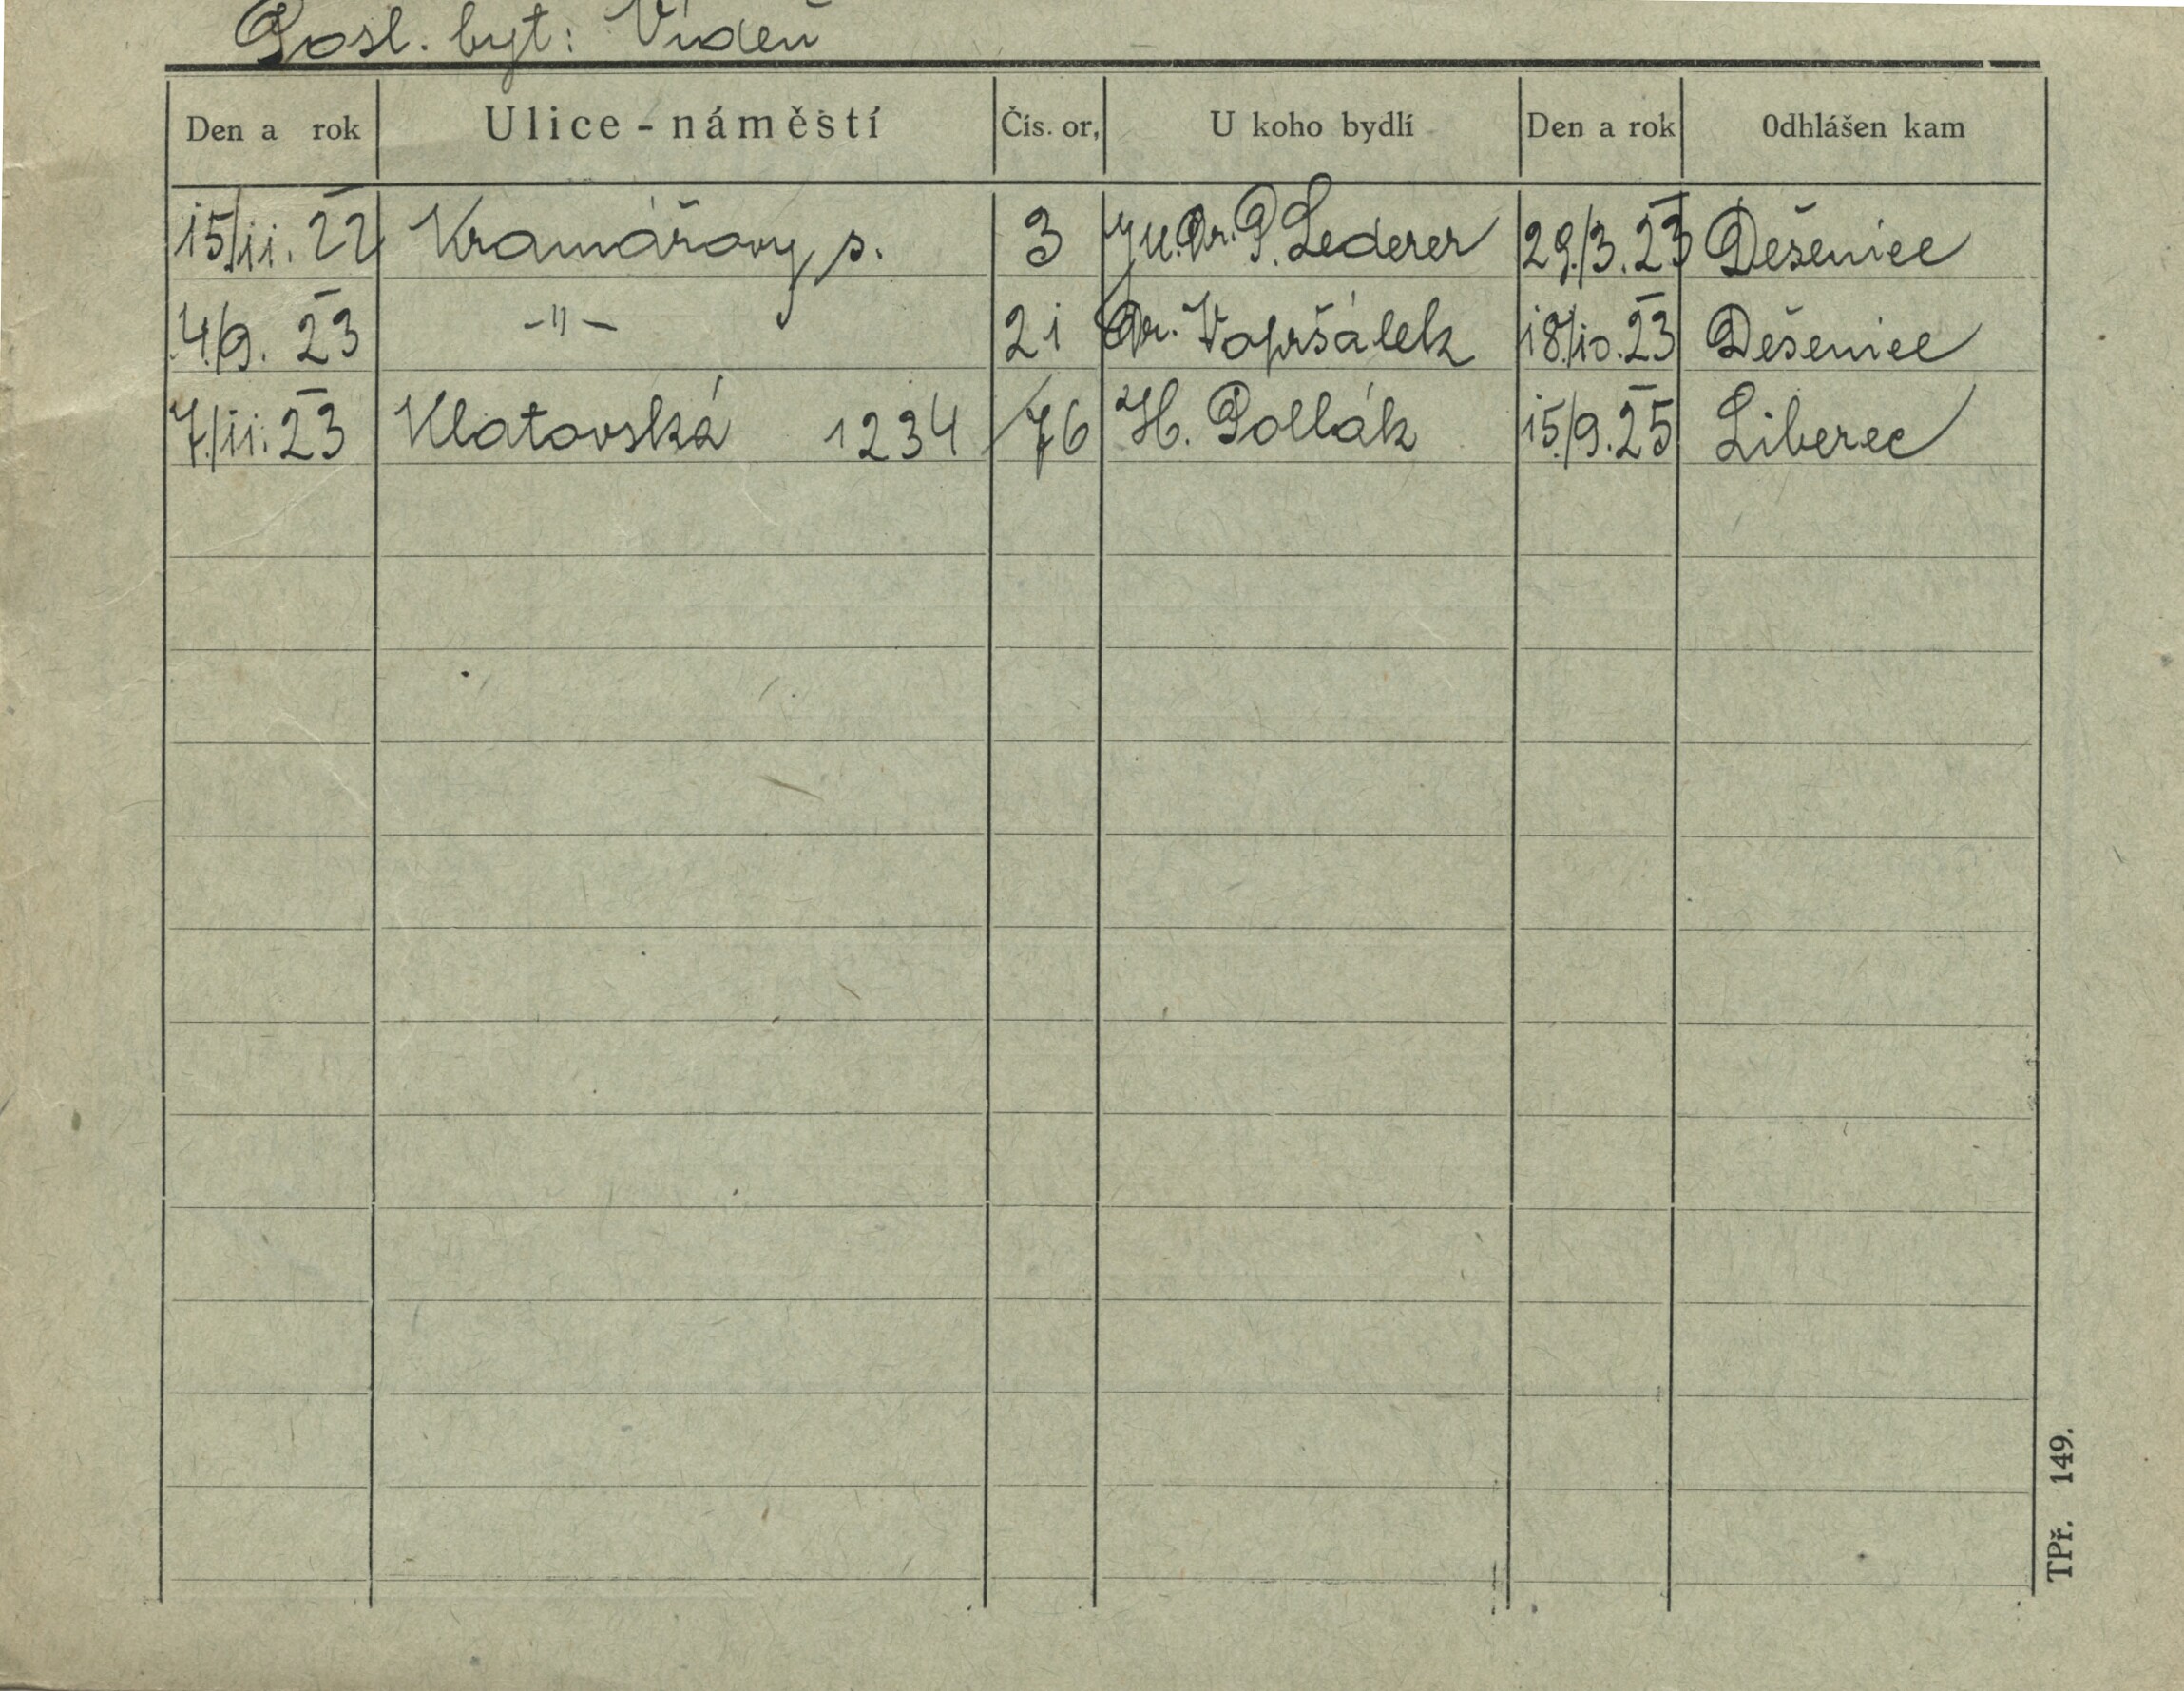 Posl. byt: Vídeň
Den a rok Ulice - náměstí Čís. or, U koho bydlí Den a rok Odhlášen kam
15/11. 22 Kramářovy s. 3 Ju.Dr. P. Lederer 29./3. 23 Dešenice
4./9. 23 -"- 21 Dr. Vopršálek 18./10. 23 Dešenice
7./11. 23 Klatovská 1234 /76 H. Pollák 15./9. 25 Liberec
TPř. 149.